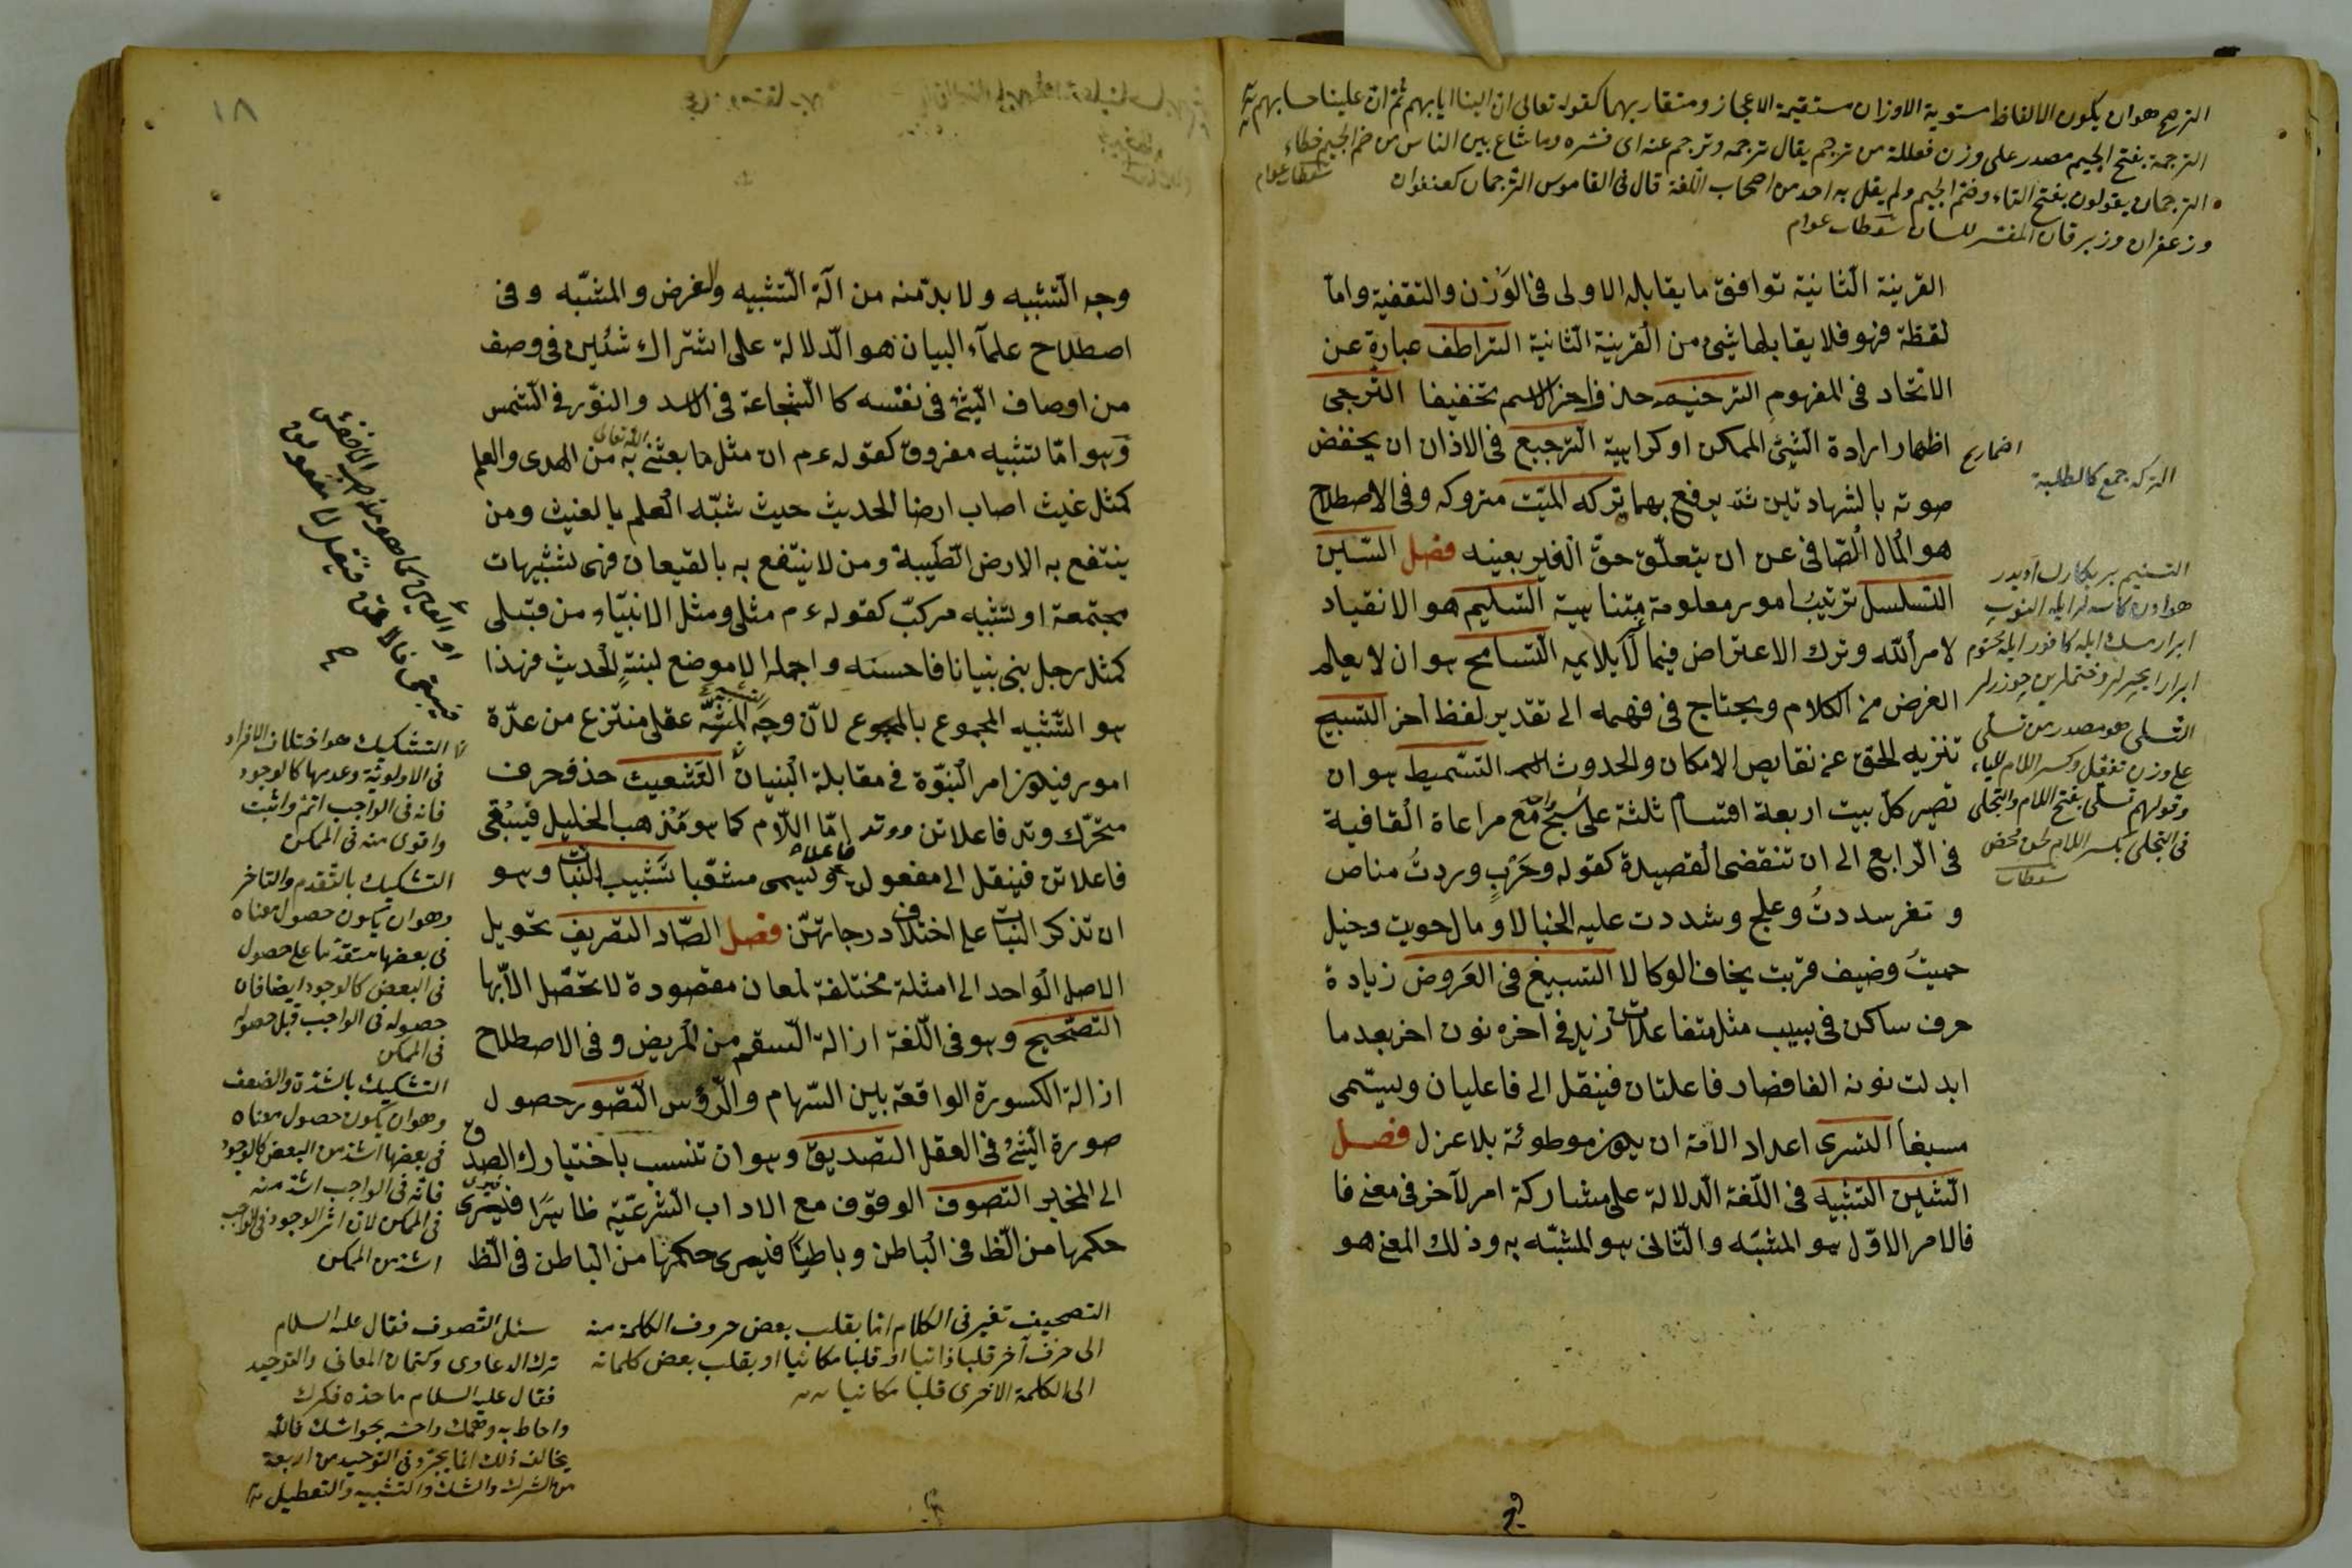 الترصيع هو ان يكون الالفاظ مستوية الاوزان متقيمة الاعجاز ومتقاربهما كقوله تعالى ان الينا ايابهم ثم ان علينا حسابهم
الترجمة بفتح الجيم مصدر على وزن فعللة من ترجم يقال ترجمه وترجم عنه اى فسّره وما شاع بين الناس من ضم الجيم خطاء
الترجمان يقولون بفتح التاء وضم الجيم ولم يقل به احد من اصحاب اللغة قال فى القاموس الترجمان كعنفوان
سقطات عوام
وزعفران وزبرقان المفسر للسان سقطات عوام
القرينة الثانية توافق ما يقابله الاولى فى الوزن والتقفية واما
لفظة فهو فلا يقابلها شئ من القرينة الثانية الترادف عبارة عن
الاتحاد فى المفهوم الترخيم حذف اخر الاسم تخفيفا الترجى
اظهار ارادة الشئ الممكن او كراهية الترجيع فى الاذان ان يخفض
صوته بالشهادتين ثم يرفع بهما تركه الميّت متروكه وفى الاصطلاح
هو المال الصافى عن ان يتعلّق حقّ الغير بعينه فصل السّين
التسلسل ترتيب امور معلومة متناهية التسليم هو الانقياد
لامر الله وترك الاعتراض فيما لا يلايمه التسامح هو ان لا يعلم
الغرض من الكلام ويحتاج فى فهمه الى تقدير لفظ اخر التسبيح
تنزيه الحق عن نقايص الامكان والحدوث التسميط هو ان
تصير كلّ بيت اربعة اقسام ثلثة على سجع واحد مع مراعاة القافية
فى الرابع الى ان تنقضى القصيدة كقوله وحرب وردتُ مناص
وثغر سددتُ وعلج وشددت عليه الحبالا ومال حويت وخيل
حميتُ وضيف قريت يخاف الوكالا التسبيغ فى العروض زيادة
حرف ساكن فى سبب مثل متفاعلاتن زيد فى اخره نون اخر بعد ما
ابدلت نونه الفا فصار فاعلتان فينقل الى فاعليان ويسمى
مسبغا التسرى اعداد الامة ان يكون موطوئة بلا عزل فصل
الشين التشبيه فى اللغة الدلالة على مشاركة امر لآخر فى معنى فا
فالامر الاوّل هو المشبّه والثانى هو المشبّه به وذلك المعنى هو
التركه جمع كالطلبة
التسنيم
التسلى هو مصدر من تسلى
على وزن تفعّل وكسر اللام للياء
وقولهم تسلّى بفتح اللام والتجلى
فى التجلى بكسر اللام لحن محض
سقطات
١٨
وجه التشبيه ولا بدّ منه من آلة التشبيه والغرض والمشبّه وفى
اصطلاح علمآء البيان هو الدّلالة على اشتراك شئين فى وصف
من اوصاف الشئ فى نفسه كالشجاعة فى الاسد والنوّر فى الشمس
وهو امّا تشبيه مفروق كقوله ءم ان مثل ما بعثنى الله تعالى به من الهدى والعلم
كمثل غيث اصاب ارضا الحديث حيث شبّه العلم بالغيث ومن
ينتفع به الارض الطّيبة ومن لا ينتفع به بالقيعان فهى تشبيهات
مجتمعة او تشبيه مركبّ كقوله ءم مثلى ومثل الانبيّاء من قبلى
كمثل رجل بنى بنيانا فاحسنه واجمله الا موضع لبنةٍ الحديث فهذا
هو التّشبيه المجموع بالمجموع لانّ وجه الشبه عقلى منتزع من عدّة
امور فيكون امر النبّوة فى مقابلة البنيان التشعيث حذف حرف
متحرّك وتد فاعلاتن ووتد امّا اللّام كما هو مذهب الخليل فيبقى
فاعلاتن فينقل الى مفعولن ويسمى مشعّبا تشبيب البنات وهو
ان تذكر البنات على اختلاف درجاتهنّ فصل الصّاد التصريف تحويل
الاصل الواحد الى امثلة مختلفة لمعان مقصودة لا تحصل الا بها
التصحيح وهو فى اللّغة ازالة السقم من المريض وفى الاصطلاح
ازالة الكسورة الواقعة بين السّهام والرؤس التصور حصول
صورة الشئ فى العقل التصديق وهو ان تنسب باختيارك الصدق
الى المخبر التصوف الوقوف مع الاداب الشرعيّة ظاهرًا فيرى
حكمها من الظ فى الباطن وباطنًا فيرى حكمها من الباطن فى الظ
التشكيك هو اختلاف الافراد
فى الاولوية وعدمها كالوجود
فانه فى الواجب اتم واثبت
واقوى منه فى الممكن
التشكيك بالتقدم والتاخر
وهو ان يكون حصول معناه
فى بعضها متقدما على حصول
فى البعض كالوجود ايضا فان
حصوله فى الواجب قبل حصوله
فى الممكن
التشكيك بالشدة والضعف
وهو ان يكون حصول معناه
فى بعضها اشد من البعض كالوجود
فانّه فى الواجب اشد منه
فى الممكن لان اثر الوجود فى الواجب
اشد من الممكن
التصحيف تغير فى الكلام اما بقلب بعض حروف الكلمة منه
الى حرف آخر قلبا ذاتيا او قلبا مكانيا او بقلب بعض كلماته
الى الكلمة الاخرى قلبا مكانيا
سئل التصوف فقال عليه السلام
ترك الدعاوى وكتمان المعانى والتوحيد
فقال عليه السلام ما حده فكرك
واحاط به وهمك واحسّه بحواسك فالله
يخالف ذلك انما يجرّد فى التوحيد من اربعة
من الشرك والشك والتشبيه والتعطيل